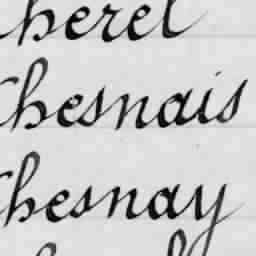 Cherel
Chesnais
Chesnay